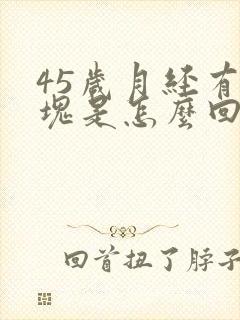 45歲月经有
塊是怎麼回
回首扭了脖子